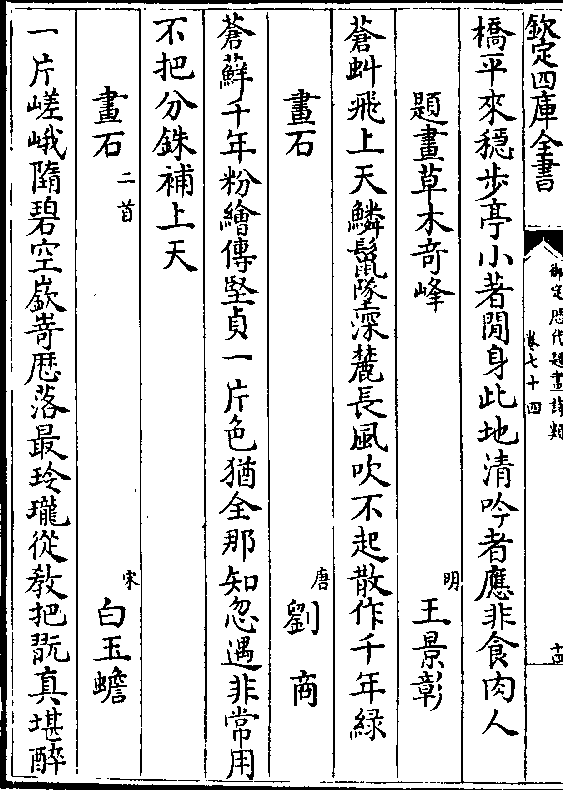 欽定四庫全書
御定歷代題畫詩類
卷七十四
十四
橋平來穩步亭小著閒身此地清吟者應非食肉人
題畫草木竒峰
明
王景彰
蒼虯飛上天鱗鬛墜深麓長風吹不起散作千年綠
畫石
唐
劉商
蒼蘚千年粉繪傳堅貞一片色猶全那知忽遇非常用
不把分銖補上天
畫石二首
宋
白玉蟾
一片嵯峨隋碧空嶔嵜歴落最玲瓏從教把翫真堪醉